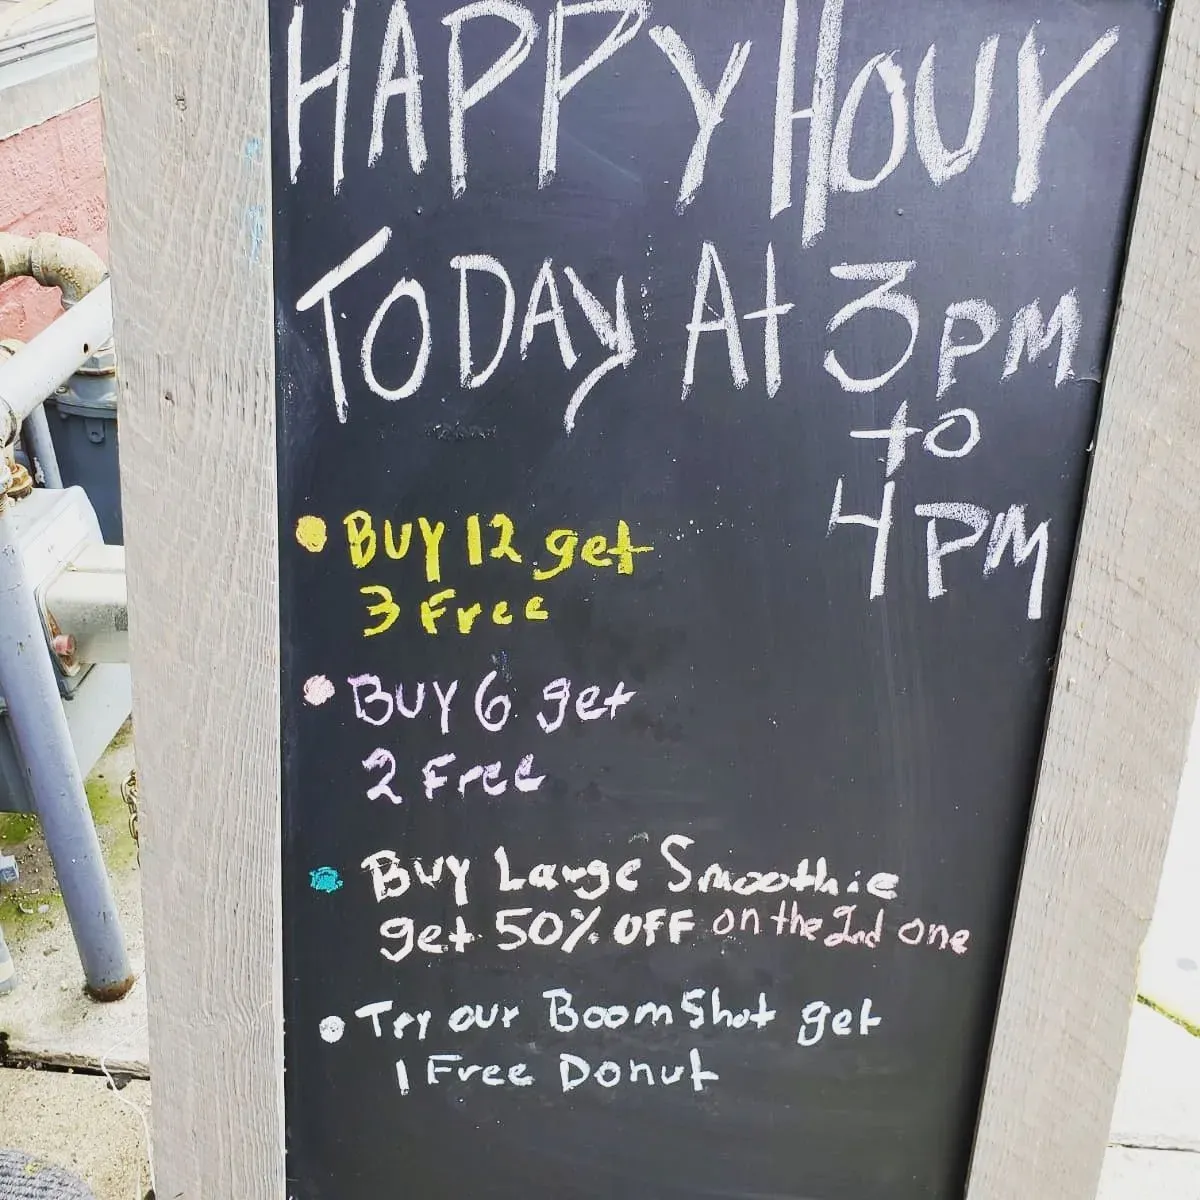 HAPPY HOUr
TODAy At 3PM
to
4PM
BUY 12 get
3 Free
BUY 6 get
2 Free
Buy Large Smoothie
get 50% OFF on the 2nd one
Try our Boom Shot get
1 Free Donut